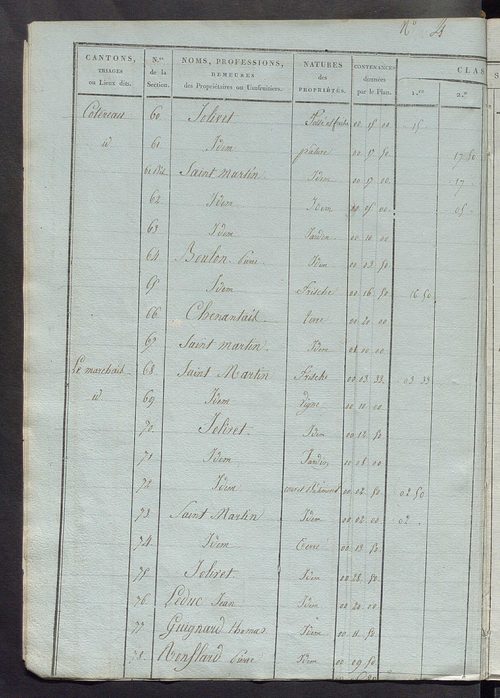 N° 4
CANTONS, TRIAGES ou Lieux dits. N.os de la Section. NOMS, PROFESSIONS, DEMEURES des Propriétaires ou Usufruitiers. NATURES des PROPRIÉTÉS. CONTENANCES données par le Plan. CLAS
1.re 2.e
Cotereau 60 Jolivet 00 15 00 15
id 61 Idem pature 00 17 50 17 50
61 bis Saint Martin Idem 00 17 00 17
62 Idem Idem 00 05 00 05
63 Idem Jardin 00 10 00
64 Boulon Idem 00 03 50
65 Idem Friche 00 16 50 16 50
66 Chenantais terre 00 20 00
67 Saint martin Idem 00 10 00
Le marchais 68 Saint Martin Friche 00 03 33 03 33
id 69 Idem vigne 00 11 00
70 Jolivet Idem 00 12 50
71 Idem Jardin 00 08 00
72 Idem 00 02 50 02 50
73 Saint Martin Idem 00 02 00 02
74 Idem Terre 00 13 50
75 Jolivet Idem 00 28 50
76 Leduc Jean Idem 00 24 00
77 Guignard thomas Idem 00 11 50
78 Ronflard Idem 00 09 50